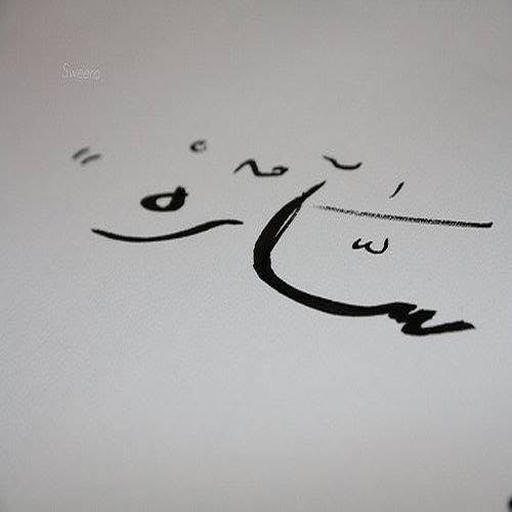 Sweero
سارة